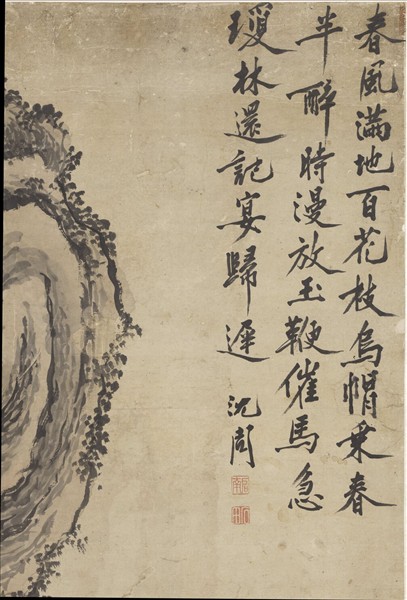 春風滿地百花枝烏帽乘春
半醉時漫放玉鞭催馬急
瓊林還記宴歸遲
沈周